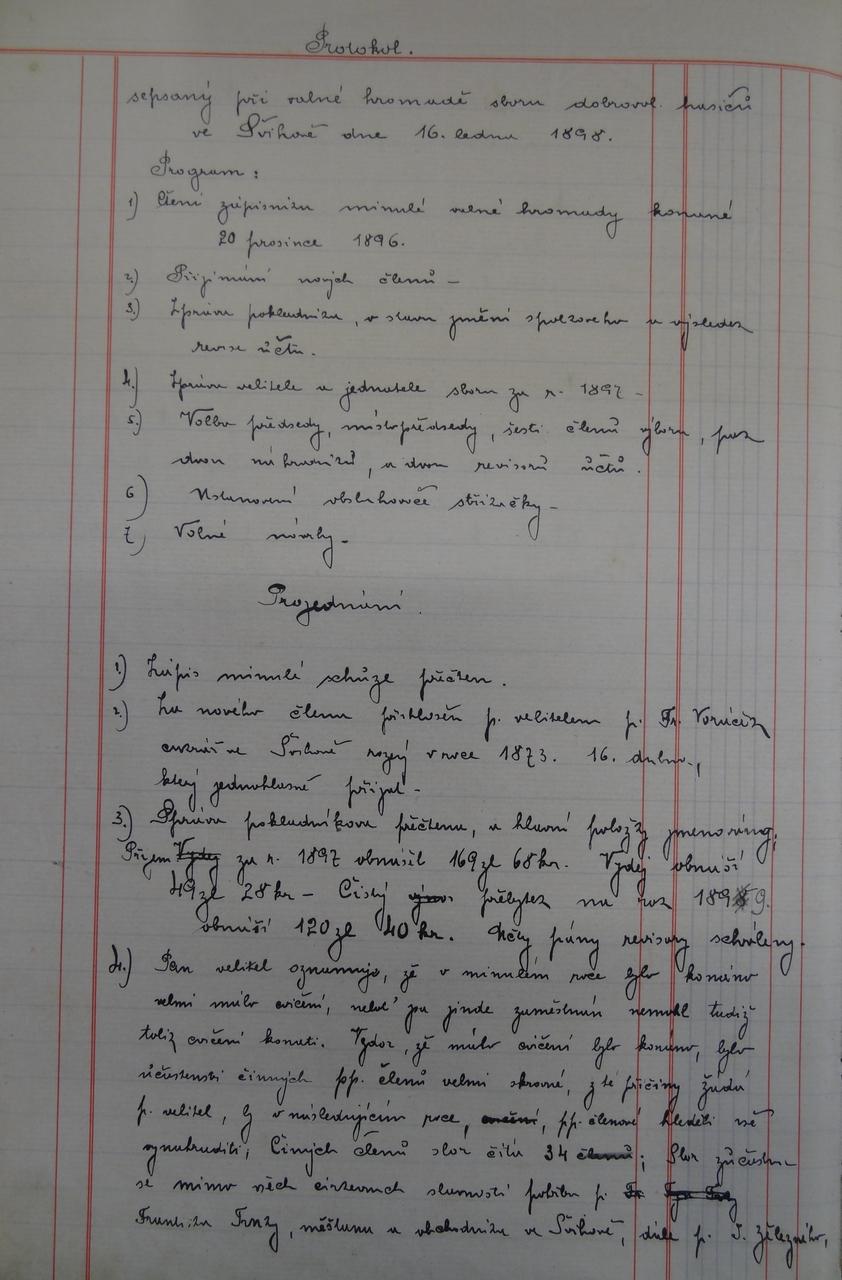 Protokol.
sepsaný při valné hromadě sboru dobrovol. hasičů
ve Švihově dne 16. ledna 1898.
Program:
1) Čtení zápisníku minulé valné hromady konané
20 prosince 1896.
2.) Přijímání nových členů –
3.) Zpráva pokladníka, o stavu jmění spolkového a výsledek
revise účtu.
4.) Zpráva velitele a jednatele sboru za r. 1897 –
5.) Volba předsedy, místopředsedy, šesti členů výboru, pak
dvou náhradníků, a dvou revisorů účtů.
6) Ustanovení obsluhovače stříkačky –
7) Volné návrhy –
Projednání.
1.) Zápis minulé schůze přečten.
2.) Za nového člena přihlášen p. velitelem p. Fr.
cukrář ve Švihově rozený v roce 1873. 16. dubna,
který jednohlasně přijat –
3.) Zpráva pokladníkova přečtena, a hlavní položky jmenovány,
Příjem Výdej za r. 1897 obnášil 169 zl 68 kr. Výdej obnáší
49 zl 28 kr – Čistý výnos přebytek na rok 1899.
obnáší 120 zl 40 kr. Účty pány revisory schváleny.
4.) Pan velitel oznamuje, že v minulém roce bylo konáno
velmi málo cvičení, neboť jsa jinde zaměstnán nemohl tudíž
tolik cvičení konati. Vzdor, že málo cvičení bylo konáno, bylo
účastenství činných pp. členů velmi skrovné, z té příčiny žádá
p. velitel, by v následujícím roce, cvičení, pp. členové hleděli vše
vynahraditi, Činých členů sbor čítá 34 členů; Sbor zúčastnil
se mimo všech církevních slavností pohřbu p. Fr.
Františka, měšťana a obchodníka ve Švihově, dále p. J. Železného,